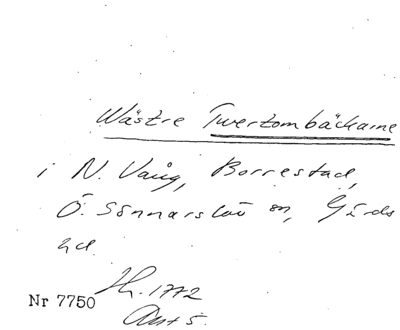 Wästre Twertombäckarne
i N. Vång, Borrestad,
Ö. Sönnarslöv sn, Gärds
hd.
Nr 7750
1772
Akt 5.